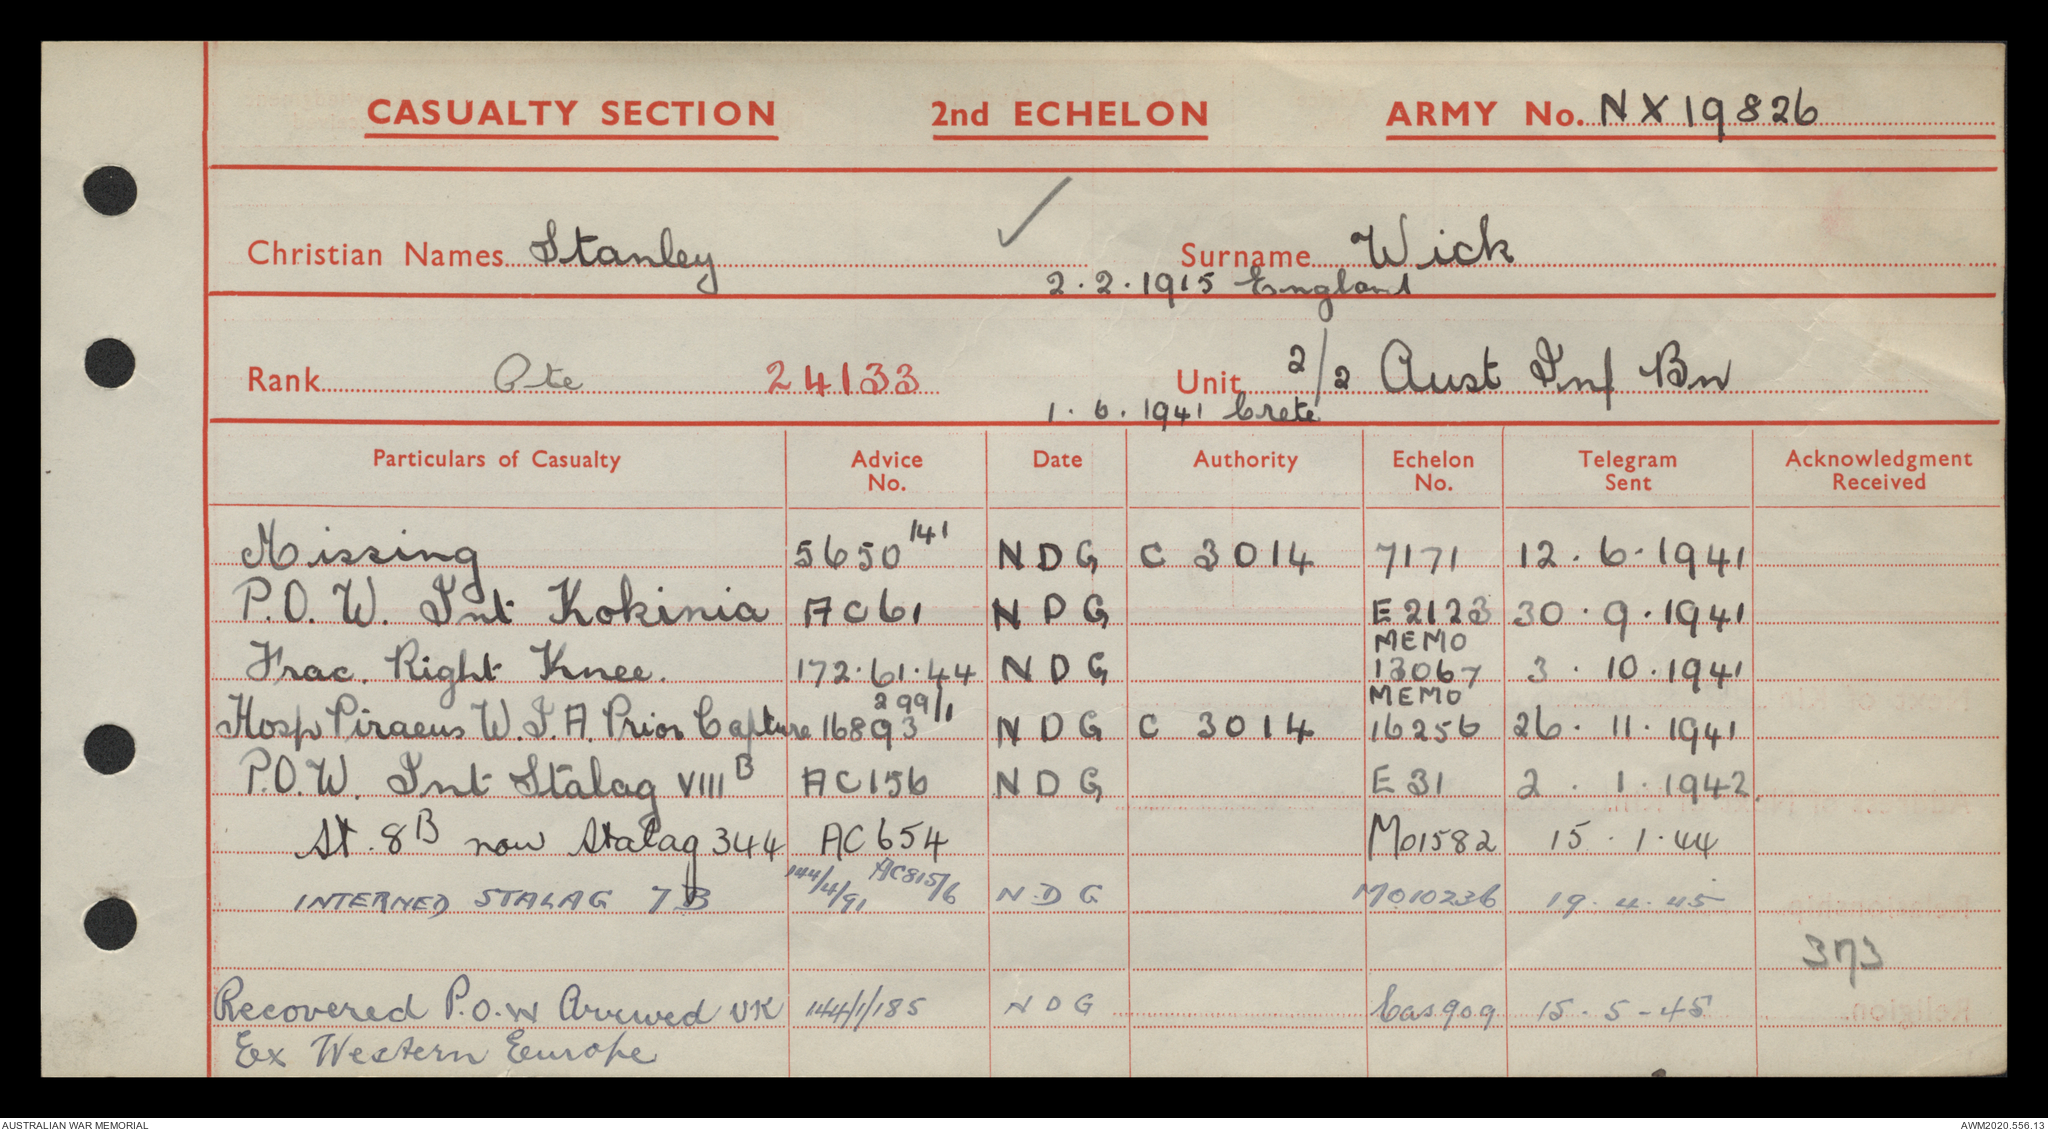 CASUALTY SECTION 2nd ECHELON ARMY No. NX19826
Christian Names Stanley Surname Wick
2.2.1915 England
Rank Pte 24133 Unit 2/2 Aust Inf Bn
1.6.1941 Crete
Particulars of Casualty Advice No. Date Authority Echelon No. Telegram Sent Acknowledgment Received
Missing 5650/41 NDG C 3014 7171 12.6.1941
P.O.W. Int Kokinia AC61 NDG E2123 30.9.1941
Frac. Right Knee. 172.61.44 NDG MEMO 13067 3.10.1941
Hosp Piraeus W.I.A. Prior Capture 16893 299/1 NDG C 3014 MEMO 16256 26.11.1941
P.O.W. Int Stalag VIII B AC156 NDG E31 2.1.1942.
St. 8B now Stalag 344 AC654 M01582 15.1.44
INTERNED STALAG 7B 144/4/91 AC815/6 NDG M010236 19.4.45
373
Recovered P.O.W Arrived UK 144/1/185 NDG Cas909 15.5-45
Ex Western Europe
AUSTRALIAN WAR MEMORIAL AWM2020.556.13